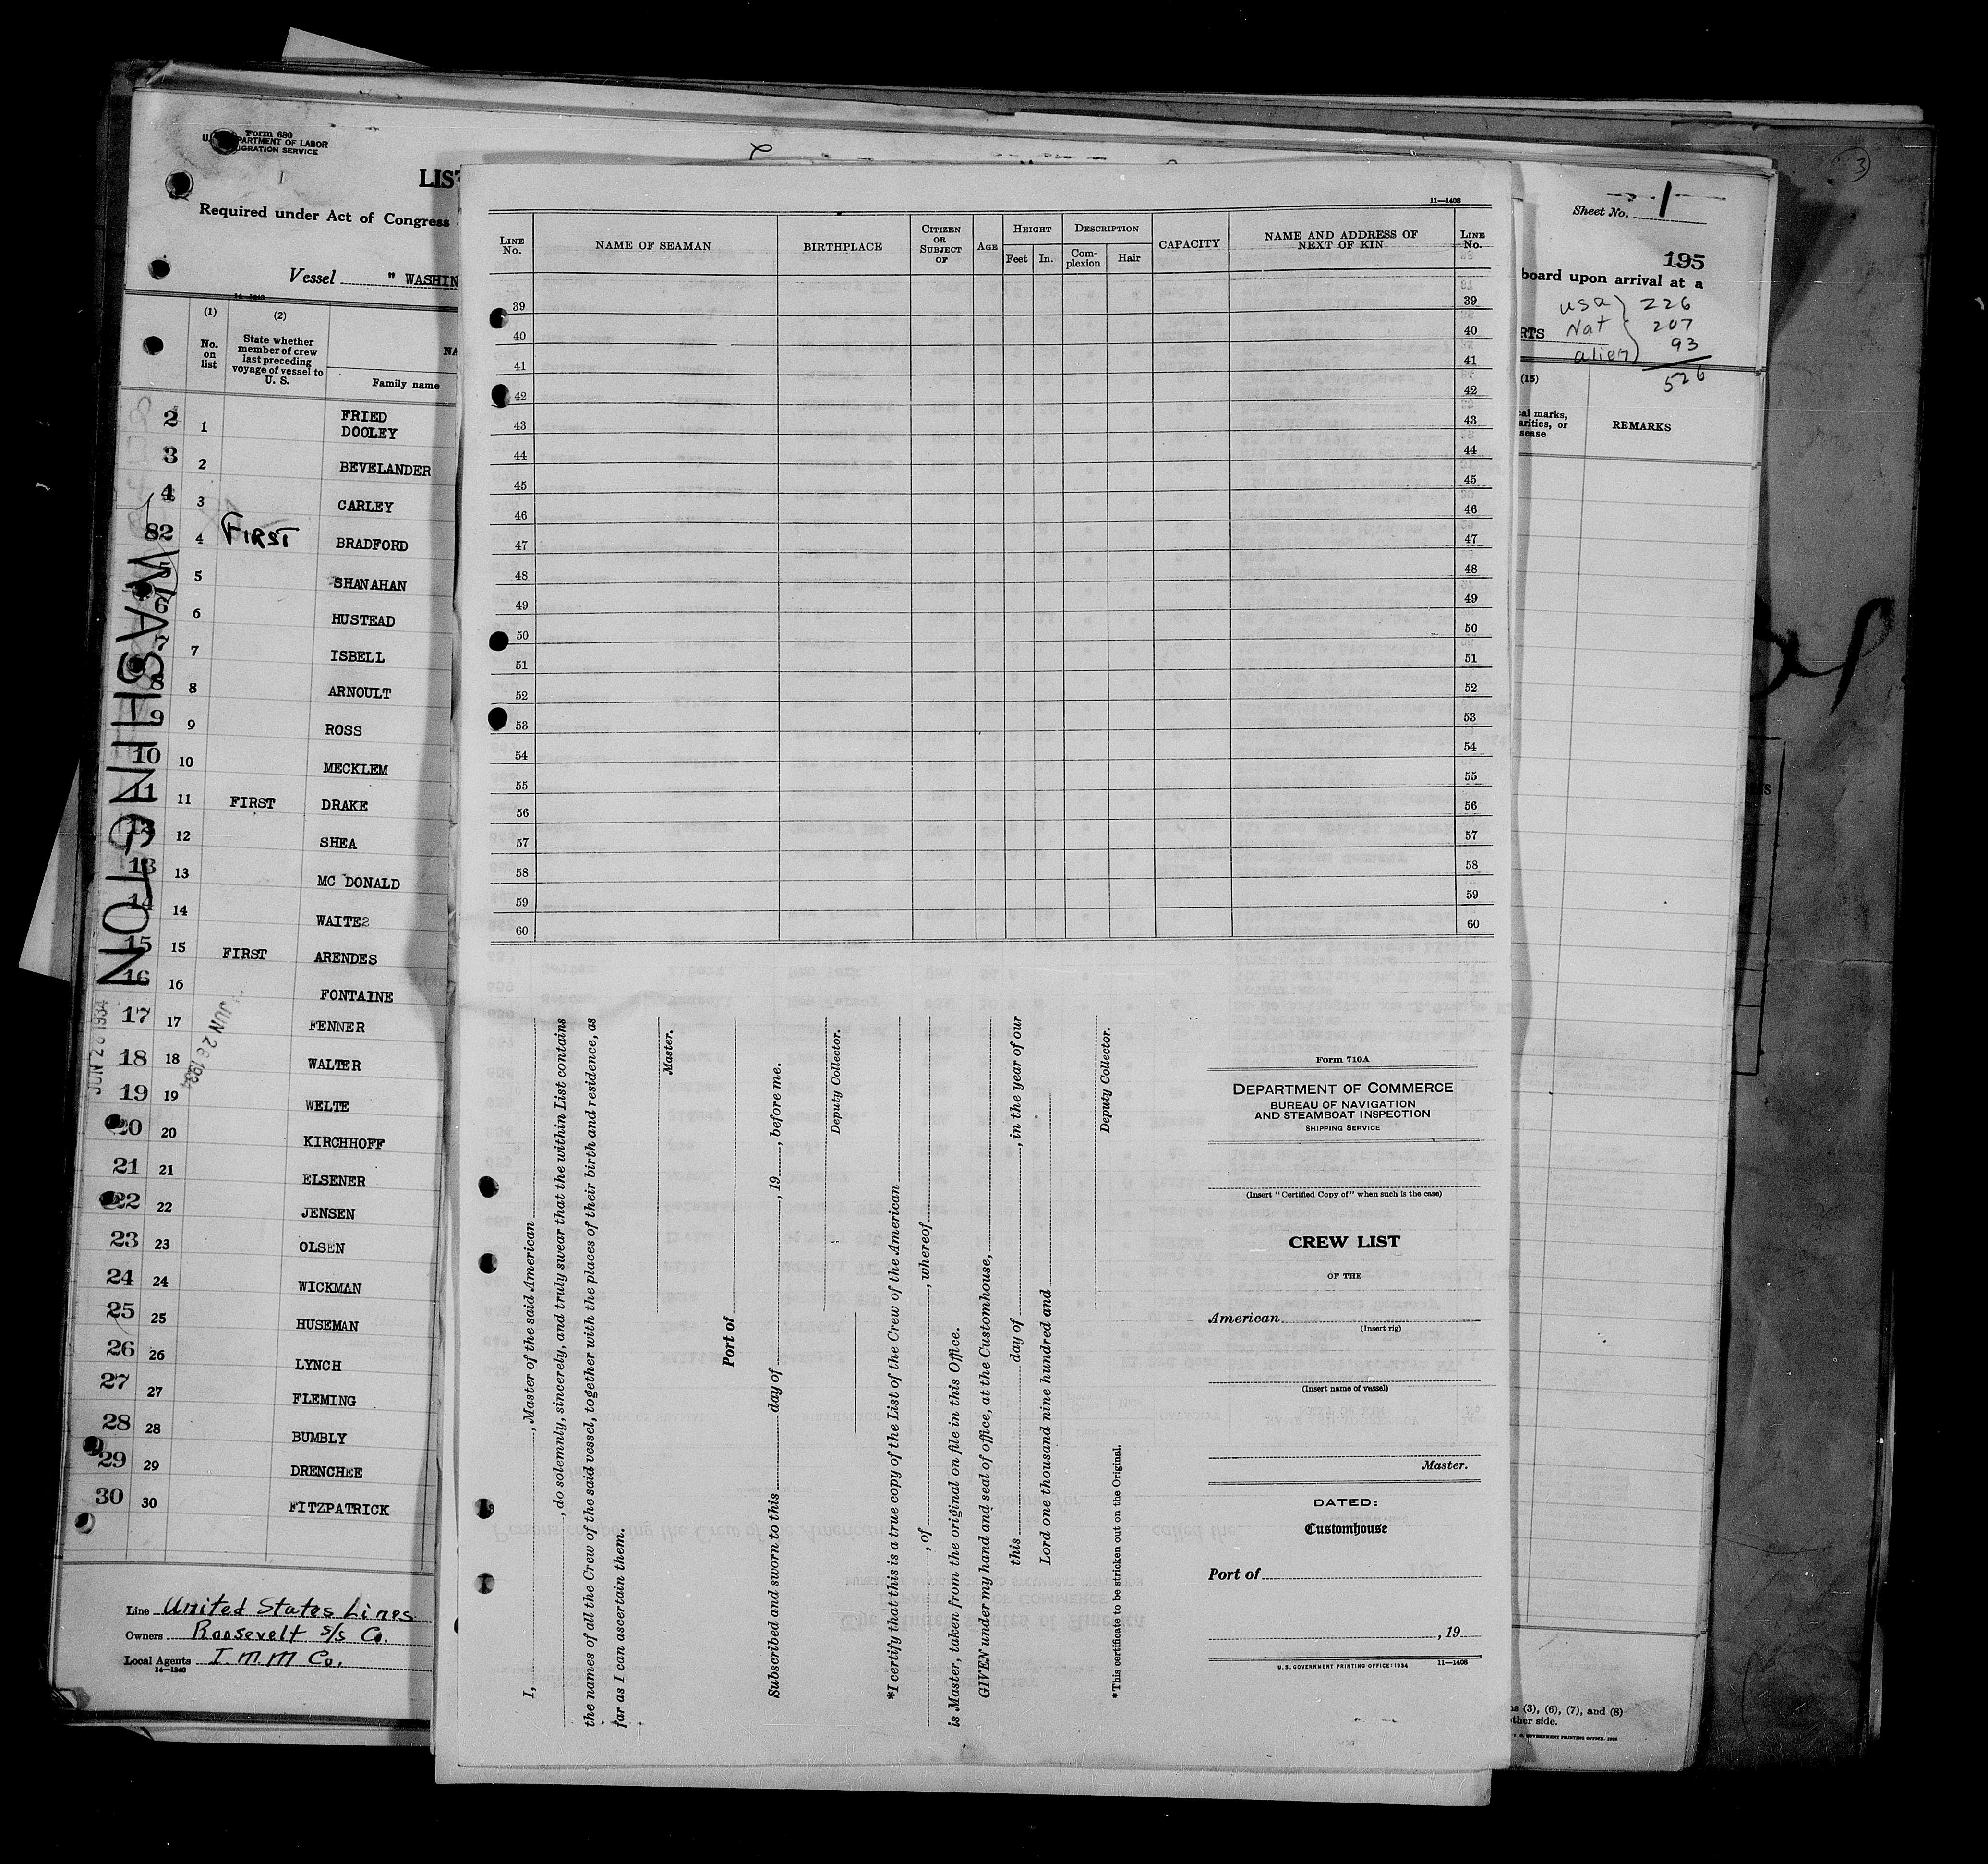 Form 680
U. S. DEPARTMENT OF LABOR
IMMIGRATION SERVICE
LIST
Required under Act of Congress
Vessel " WASHIN
14—1240
(1)
No. on list
(2)
State whether member of crew last preceding voyage of vessel to U. S.
NA
Family name
2 1 FRIED
DOOLEY
3 2 BEVELANDER
4 3 CARLEY
82 4 FIRST BRADFORD
5 SHANAHAN
6 6 HUSTEAD
7 7 ISBELL
8 8 ARNOULT
9 9 ROSS
10 10 MECKLEM
11 11 FIRST DRAKE
12 12 SHEA
13 13 MC DONALD
14 14 WAITES
15 15 FIRST ARENDES
16 16 FONTAINE
17 17 FENNER
18 18 WALTER
19 19 WELTE
20 20 KIRCHHOFF
21 21 ELSENER
22 22 JENSEN
23 23 OLSEN
24 24 WICKMAN
25 25 HUSEMAN
26 26 LYNCH
27 27 FLEMING
28 28 BUMBLY
29 29 DRENCHEE
30 30 FITZPATRICK
WASHINGTON
JUN 28 1934
JUN 28 1934
Line United States Lines
Owners Roosevelt S/S Co.
Local Agents I.M.M Co.
14—1240
11—1408
LINE No.
NAME OF SEAMAN
BIRTHPLACE
CITIZEN OR SUBJECT OF
AGE
HEIGHT
Feet In.
DESCRIPTION
Complexion Hair
CAPACITY
NAME AND ADDRESS OF NEXT OF KIN
LINE No.
39 39
40 40
41 41
42 42
43 43
44 44
45 45
46 46
47 47
48 48
49 49
50 50
51 51
52 52
53 53
54 54
55 55
56 56
57 57
58 58
59 59
60 60
I, , Master of the said American
, do solemnly, sincerely, and truly swear that the within List contains
the names of all the Crew of the said vessel, together with the places of their birth and residence, as
far as I can ascertain them.
Master.
Port of
Subscribed and sworn to this day of , 19 , before me.
Deputy Collector.
*I certify that this is a true copy of the List of the Crew of the American
, of , whereof
is Master, taken from the original on file in this Office.
GIVEN under my hand and seal of office, at the Customhouse,
this day of , in the year of our
Lord one thousand nine hundred and
Deputy Collector.
*This certificate to be stricken out on the Original.
Form 710A
DEPARTMENT OF COMMERCE
BUREAU OF NAVIGATION
AND STEAMBOAT INSPECTION
SHIPPING SERVICE
(Insert "Certified Copy of" when such is the case)
CREW LIST
OF THE
American
(Insert rig)
(Insert name of vessel)
Master.
DATED:
Customhouse
Port of
, 19
U. S. GOVERNMENT PRINTING OFFICE: 1934 11—1408
Sheet No. 1
195
board upon arrival at a
RTS
USA 226
Nat 207
alien 93
526
(15)
cal marks,
arities, or
sease
REMARKS
ns (3), (6), (7), and (8)
ther side.
GOVERNMENT PRINTING OFFICE.
3